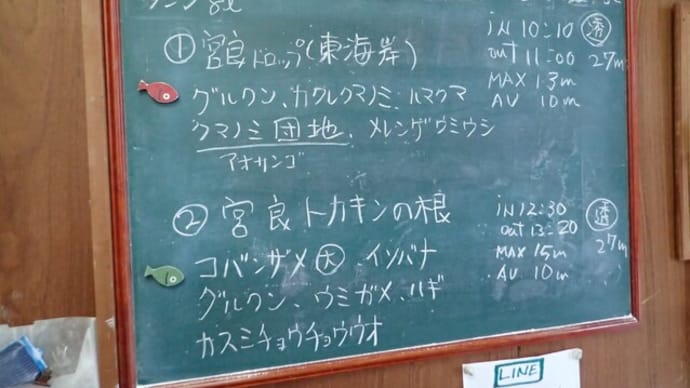 ① 宮良ドロップ(東海岸)
グルクン、カクレクマノミ、ハマクマ
クマノミ団地、メレンゲウミウシ
アオサンゴ
iN 10:10 透
out 11:00 27m
MAX 13m
AV 10m
② 宮良トカキンの根
コバンザメ大 、イソバナ
グルクン、ウミガメ、ハギ
カスミチョウチョウウオ
iN 12:30 透
out 13:20 27m
MAX 15m
AV 10m
LINE